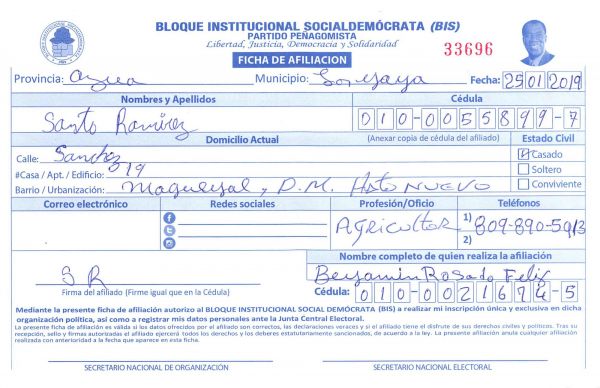 BLOQUE INSTITUCIONAL SOCIALDEMÓCRATA (BIS)
PARTIDO PEÑAGOMISTA
Libertad, Justicia, Democracia y Solidaridad
33696
FICHA DE AFILIACION
Provincia: Azua Municipio: Fecha: 25 01 2019
Nombres y Apellidos Cédula
Santo Ramirez 010-0055899-7
Domicilio Actual (Anexar copia de cédula del afiliado) Estado Civil
Calle: Sanchez Casado
#Casa / Apt. / Edificio: 019 Soltero
Barrio / Urbanización: Magueyal, D.M. Hato NUEVO Conviviente
Correo electrónico Redes sociales Profesión/Oficio Teléfonos
Agricultor 1) 809-890-5913
2)
Nombre completo de quien realiza la afiliación
S R Benjamin Rosado Felix
Firma del afiliado (Firme igual que en la Cédula) Cédula: 010-0021674-5
Mediante la presente ficha de afiliación autorizo al BLOQUE INSTITUCIONAL SOCIAL DEMÓCRATA (BIS) a realizar mi inscripción única y exclusiva en dicha
organización política, así como a registrar mis datos personales ante la Junta Central Electoral.
La presente ficha de afiliación es válida si los datos ofrecidos por el afiliado son correctos, las declaraciones veraces y si el afiliado tiene el disfrute de sus derechos civiles y políticos. Tras su
recepción, sello y firmas autorizadas el afiliado ejercerá todos los derechos y los deberes estatutariamente sancionados, de acuerdo a la ley. La presente afiliación anula cualquier afiliación
realizada con anterioridad a la fecha que aparece en esta ficha.
SECRETARIO NACIONAL DE ORGANIZACIÓN SECRETARIO NACIONAL ELECTORAL